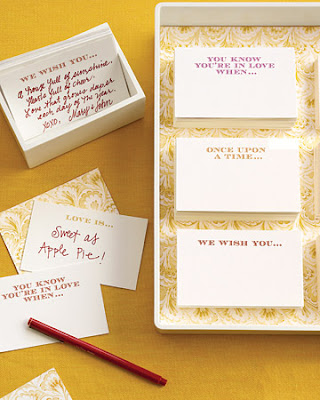 WE WISH YOU...
A house full of sunshine,
Hearts full of cheer
Love that grows deeper
each day of the year.
XOXO, Mary & John
YOU KNOW
YOU'RE IN LOVE
WHEN...
ONCE UPON
A TIME...
WE WISH YOU...
LOVE IS...
Sweet as
Apple Pie!
YOU KNOW
YOU'RE IN LOVE
WHEN...